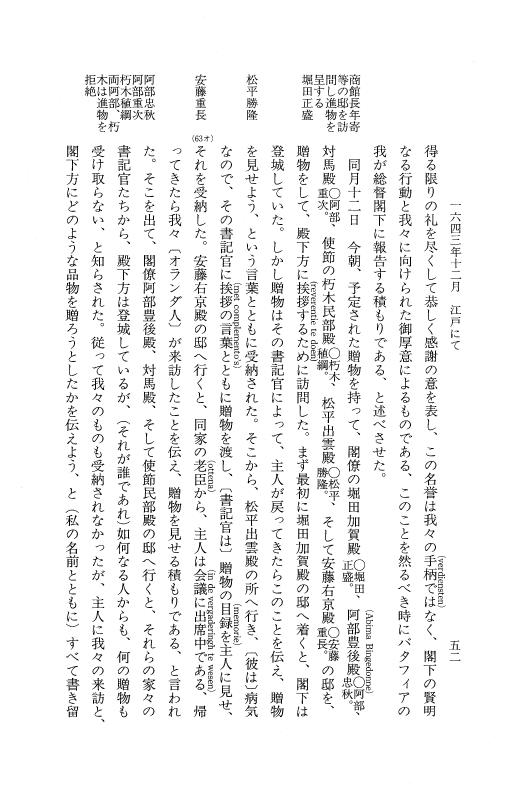 一六四三年十二月　江戸にて　五二
得る限りの礼を尽くして恭しく感謝の意を表し、この名誉は我々の手柄(verdiensten)ではなく、閣下の賢明
なる行動と我々に向けられた御厚意によるものである、このことを然るべき時にバタフィアの
我が総督閣下に報告する積もりである、と述べさせた。
商館長年寄
等の邸を訪
問し進物を
呈する
堀田正盛
同月十二日　今朝、予定された贈物を持って、閣僚の堀田加賀殿○堀田、正盛。　阿部豊後殿(Abima Bingedonne)○阿部、忠秋。
対馬殿○阿部、重次。　使節の朽木民部殿○朽木、稙綱。　松平出雲殿○松平、勝隆。　そして安藤右京殿○安藤重長。の邸を、
贈物をして、殿下方に挨拶するために(reverentie te doen)訪問した。まず最初に堀田加賀殿の邸へ着くと、閣下は
登城していた。しかし贈物はその書記官によって、主人が戻ってきたらこのことを伝え、贈物
松平勝隆
を見せよう、という言葉とともに受納された。そこから、松平出雲殿の所へ行き、〔彼は〕病気
なので、その書記官に挨拶の言葉とともに(met complemento's)贈物を渡し、〔書記官は〕贈物の目録(memorie)を主人に見せ、
安藤重長
(63オ)
それを受納した。安藤右京殿の邸へ行くと、同家の老臣(ottona)から、主人は会議に出席中である(in de vergaderingh te wesen)、帰
ってきたら我々〔オランダ人〕が来訪したことを伝え、贈物を見せる積もりである、と言われ
阿部忠秋
阿部重次
朽木稙綱
両阿部、朽
木は進物を
拒絶
た。そこを出て、閣僚阿部豊後殿、対馬殿、そして使節民部殿の邸へ行くと、それらの家々の
書記官たちから、殿下方は登城しているが、(それが誰であれ)如何なる人からも、何の贈物も
受け取らない、と知らされた。従って我々のものも受納されなかったが、主人に我々の来訪と、
閣下方にどのような品物を贈ろうとしたかを伝えよう、と(私の名前とともに)すべて書き留